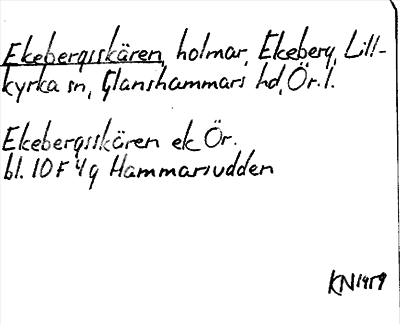 Ekebergsskären, holmar, Ekeberg, Lill-
kyrka sn, Glanshammars hd, Ör. l.
Ekebergsskären ek Ör.
bl. 10F 4g Hammarsudden
KN1959